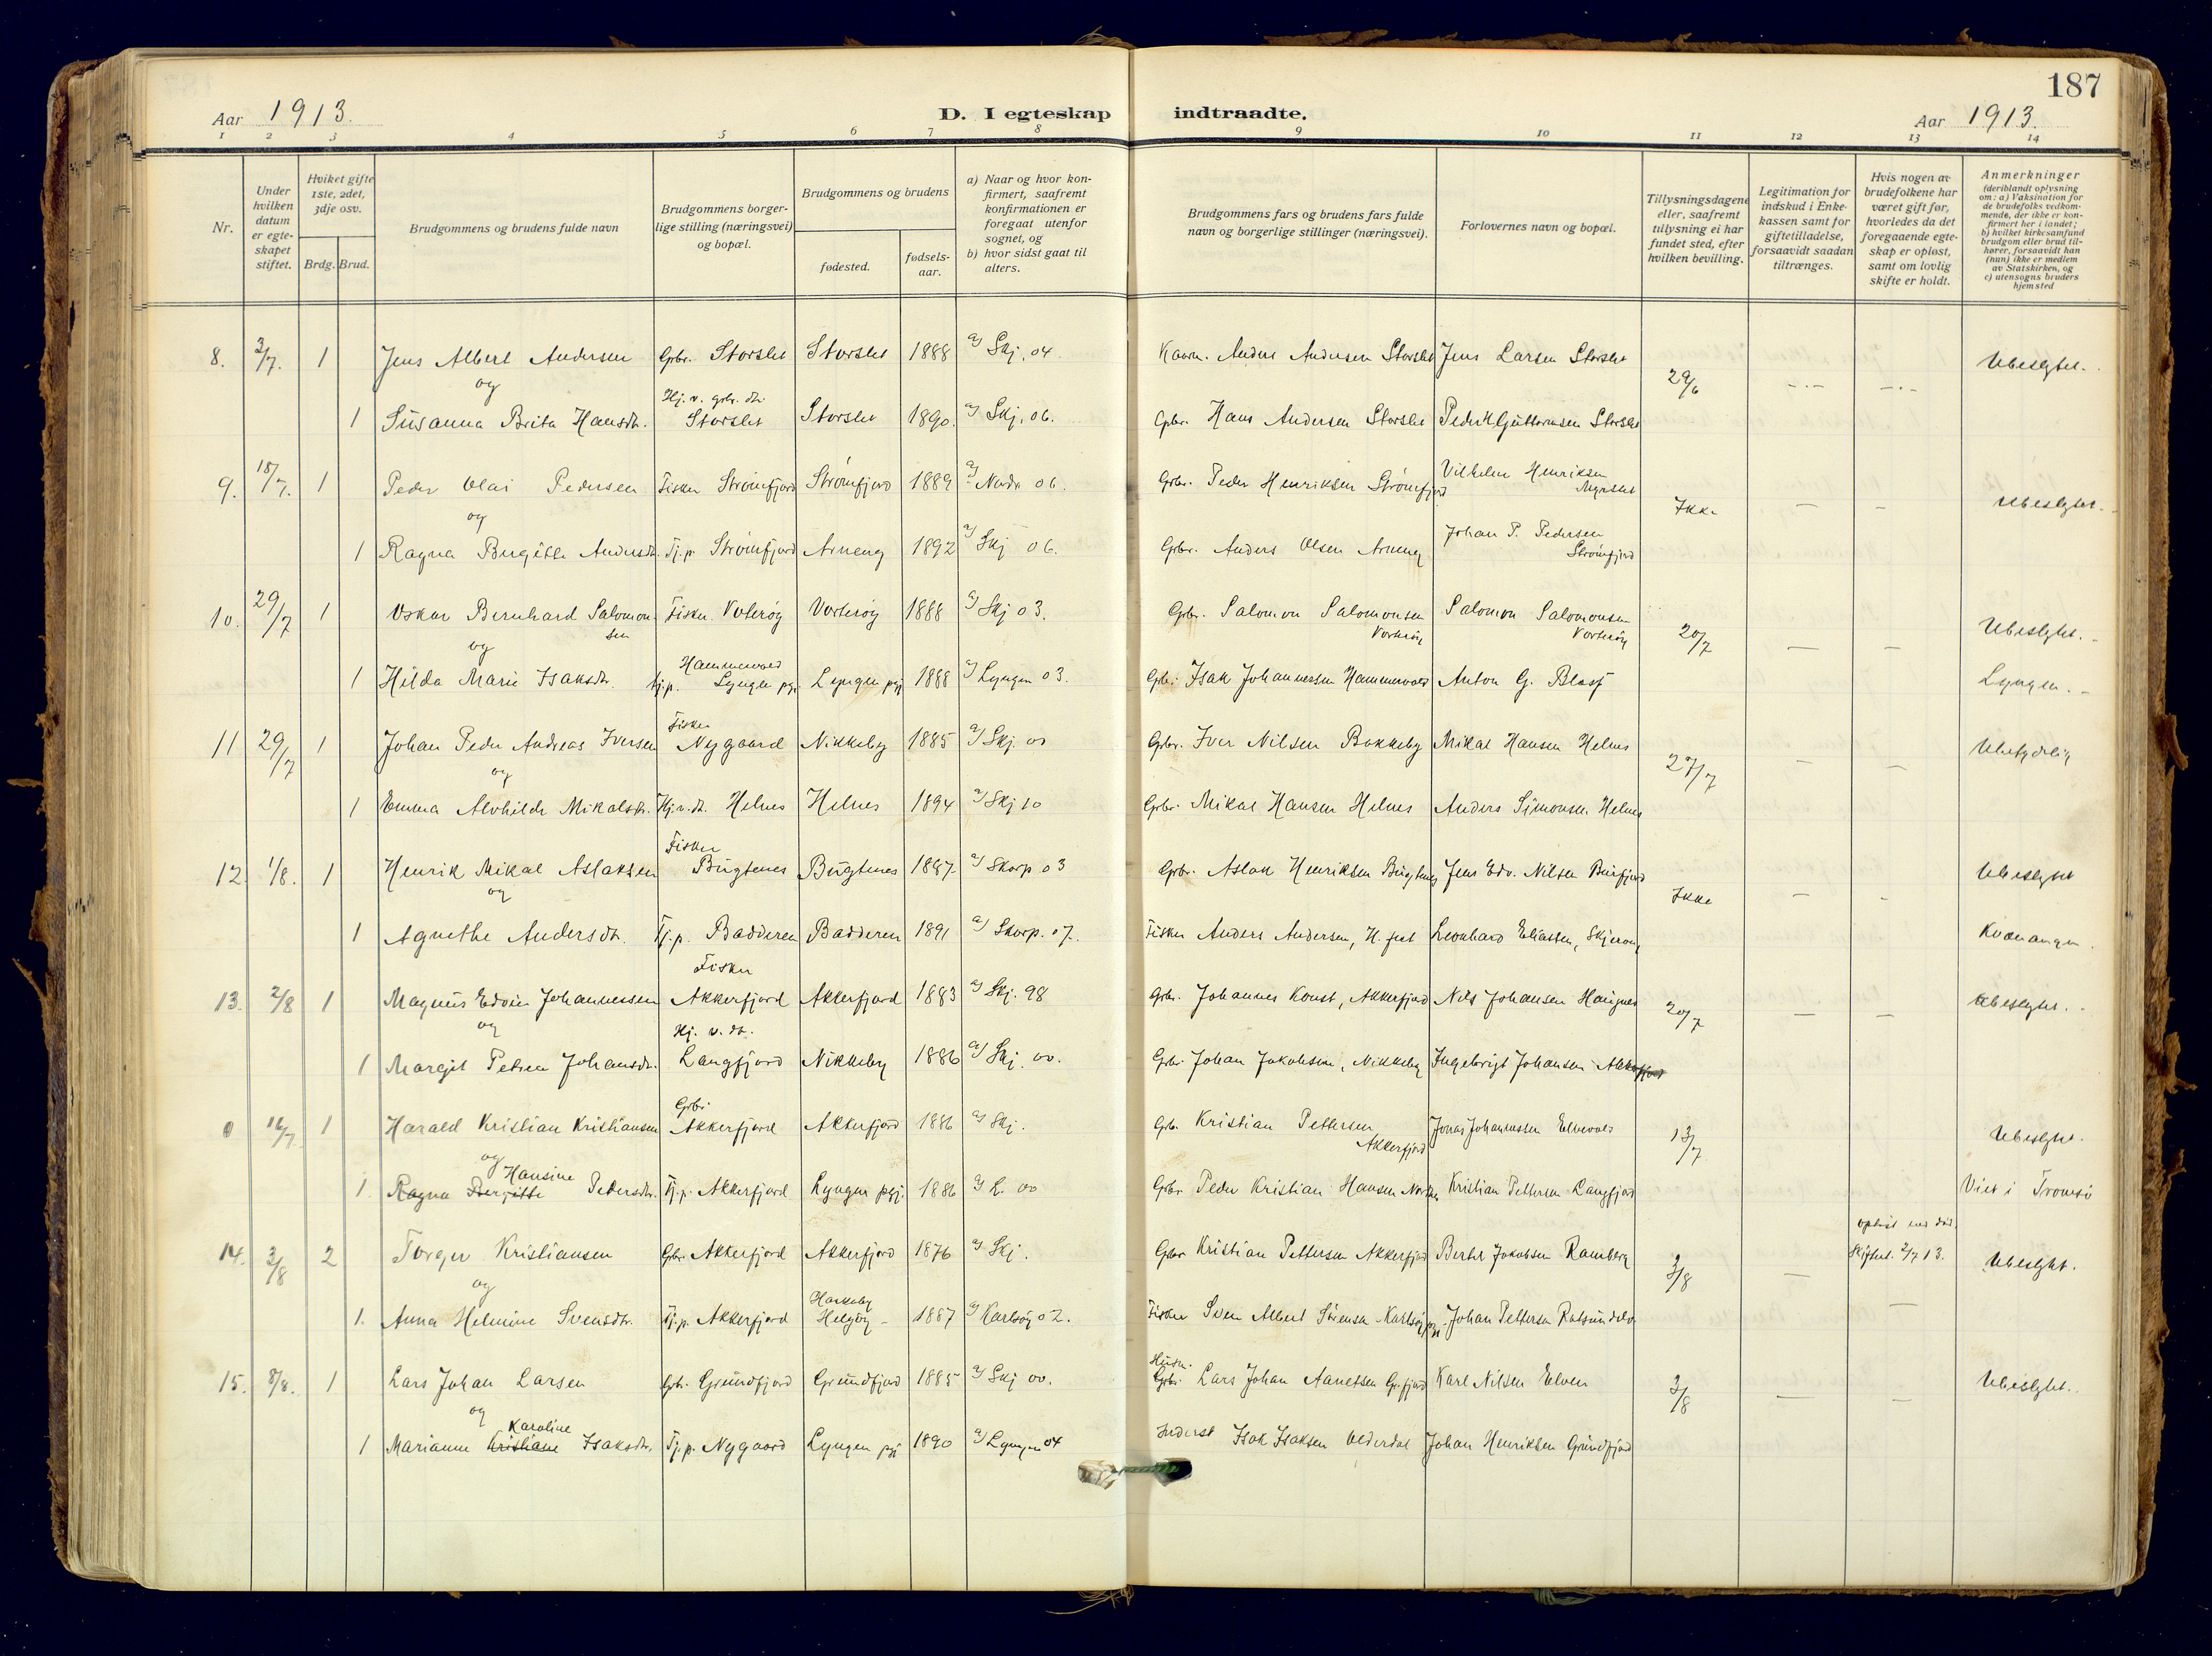 187
Aar 1913.
D. I egteskap indtraadte.
Aar 1913.
1 2 3 4 5 6 7 8 9 10 11 12 13 14
Nr.
Under hvilken datum er egte-skapet stiftet.
Hviket gifte 1ste, 2det, 3dje osv.
Brdg. Brud.
Brudgommens og brudens fulde navn
Brudgommens borger-lige stilling (næringsvei) og bopæl.
Brudgommens og brudens
fødested.
fødsels-aar.
a) Naar og hvor kon-firmert, saafremt konfirmationen er foregaat utenfor sognet, og
b) hvor sidst gaat til alters.
Brudgommens fars og brudens fars fulde navn og borgerlige stillinger (næringsvei).
Forlovernes navn og bopæl.
Tillysningsdagene eller, saafremt tillysning ei har fundet sted, efter hvilken bevilling.
Legitimation for indskud i Enke-kassen samt for giftetilladelse, forsaavidt saadan tiltrænges.
Hvis nogen av brudefolkene har været gift før, hvorledes da det foregaaende egte-skap er opløst, samt om lovlig skifte er holdt.
Anmerkninger (deriblandt oplysning om: a) Vaksination for de brudefolks vedkom-mende, der ikke er kon-firmert her i landet; b) hvilket kirkesamfund brudgom eller brud til-hører, forsaavidt han (hun) ikke er medlem av Statskirken, og c) utensogns bruders hjemsted
8. 3/7. 1 Jens Albert Andersen Grbr. Storslet Storslet 1888 a) Skj. 04. Anders Andersen Storslet Jens Larsen Storslet 29/6 -.- -.- Ubeslgtet.
og
1 Susanna Brita Hansdtr. Hj. v. grbr. dtr. Storslet Storslet 1890. a) Skj. 06. Gbr. Hans Andersen Storslet Peder Guttormsen Storslet
9. 18/7. 1 Peder Olai Pedersen Fisker Strømfjord Strømfjord 1889 a) Nordr. 06. Grbr. Peder Henriksen Strømfjord Vilhelm Henriksen Ikke — - Ubeslgtet.
og
1 Ragna Birgitte Andersdtr. Tj.p. Strømfjord Arnøy 1892 a) Skj 06. Grbr. Anders Olsen Arnøy Johan P. Pedersen Strømfjord
10. 29/7 1 Oskar Bernhard Salomonsen Fisker Vorterøy 1888 a) Skj 03. Grbr. Salomon Salomonsen Vorterøy Salomon Salomonsen Vorterøy 20/7 — — Ubeslgtet.
og
1 Hilda Marie Isaksdtr. Tj.p. Hammervold Lyngen pgj. Lyngen pgj 1888 a) Lyngen 03. Grbr. Isak Johannessen Hammervold Anton G. Lyngen.
11 29/7 1 Johan Peder Andreas Iversen Fisker Nygaard Nikkeby 1885 a) Skj. 00 Grbr. Iver Nilsen Bakkeby Mikal Hansen Helnes 27/7 — —
og
1 Emma Alvhilde Mikalsdtr. Hj.v.dt. Helnes Helnes 1894 a) Skj 10 Grbr. Mikal Hansen Helnes Anders Simonsen Helnes
12. 1/8. 1 Henrik Mikal Aslaksen Fisker Bugtenes Bugtenes 1887 a) Skorp 03 Grbr. Aslak Henriksen Bugtenes Jens Edv. Nilsen Burfjord Ikke — - Ubeslgtet
og
1 Agnethe Andersdtr. Tj.p. Badderen Badderen 1891 a) Skorp. 07. Fisker Anders Andersen, H. fest Leonhard Eliassen, Skjervøy Kvænangen.
13. 2/8 1 Magnus Edvin Johannessen Fisker Akkerfjord Akkerfjord 1883 a) Skj. 98 Grbr. Johannes Konst, Akkerfjord Nils Johansen Haugnes 20/7 — — Ubeslgtet.
og
1 Margit Petrea Johansdtr. Hj. v. dt. Langfjord Nikkeby 1886 a) Skj. 00. Grbr. Johan Jakobsen, Nikkeby Ingebrigt Johansen Akkerfjord
0 16/7 1 Harald Kristian Kristiansen Grbr. Akkerfjord Akkerfjord 1886 a) Skj. Grbr. Kristian Pettersen Akkerfjord Jonas Johannessen Elvevold 13/7 Ubeslgtet.
og
1. Ragna Bergitte Hansine Pedersdtr. Tj.p. Akkerfjord Lyngen pgj. 1886 a) L. 00 Grbr. Peder Kristian Hansen Kristian Pettersen Langfjord Viet i Tromsø
14. 3/8 2 Torger Kristiansen Grbr. Akkerfjord Akkerfjord 1876 a) Skj. Grbr. Kristian Pettersen Akkerfjord Berthel Jakobsen Ramberg 3/8 — opløst ved død. Skiftet. 2/7 13. Ubeslgtet.
og
1. Anna Helmine Svensdtr. Tj.p. Akkerfjord Helgøy 1887 a) Karlsøy 02. Fisker Sven Albert Sørensen Karlsøy pgj. Johan Pettersen Rotsundelv —
15. 8/8. 1 Lars Johan Larsen Grbr. Grundfjord Grundfjord 1885 a) Skj 00. Grbr. Lars Johan Aanetsen Gr.fjord Karl Nilsen Elven 3/8 — — Ubeslgtet.
og
1 Marianne Kristiane Karoline Isaksdtr. Tj.p. Nygaard Lyngen pgj 1890 a) Lyngen 04 Inderst Isak Isaksen Olderdal Johan Henriksen Grundfjord